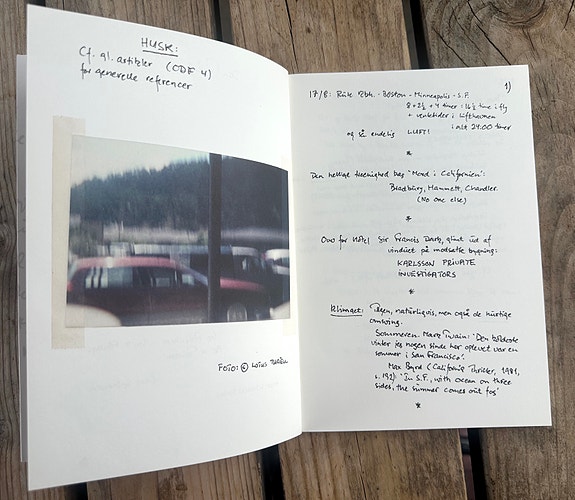 HUSK:
Cf. gl. artikler (CDF 4)
for generelle referencer
FOTO: ©
1)
17/8: Rute Kbh. - Boston - Minneapolis - S.F.
8 + 2½ + 4 timer: 14½ time i fly
+ ventetider i lufthavnen
i alt 24:00 timer
og så endelig LUFT!
*
Den hellige treenighed bag 'Mord i Californien':
Bradbury, Hammett, Chandler.
(No one else)
*
Ovo for Hotel Sir Francis Drake, glimt ud af
vinduet på modsatte bygning:
KARLSSON PRIVATE
INVESTIGATORS
*
Klimaet: Tågen, naturligvis, men også de hurtige
omsving.
Sommeren. Mark Twain: 'Den koldeste
vinter jeg nogen sinde har oplevet var en
sommer i San Francisco'.
Max Byrd (California Thriller, 1981,
s. 192) 'In S.F., with ocean on three
sides, the summer comes out fog'
*